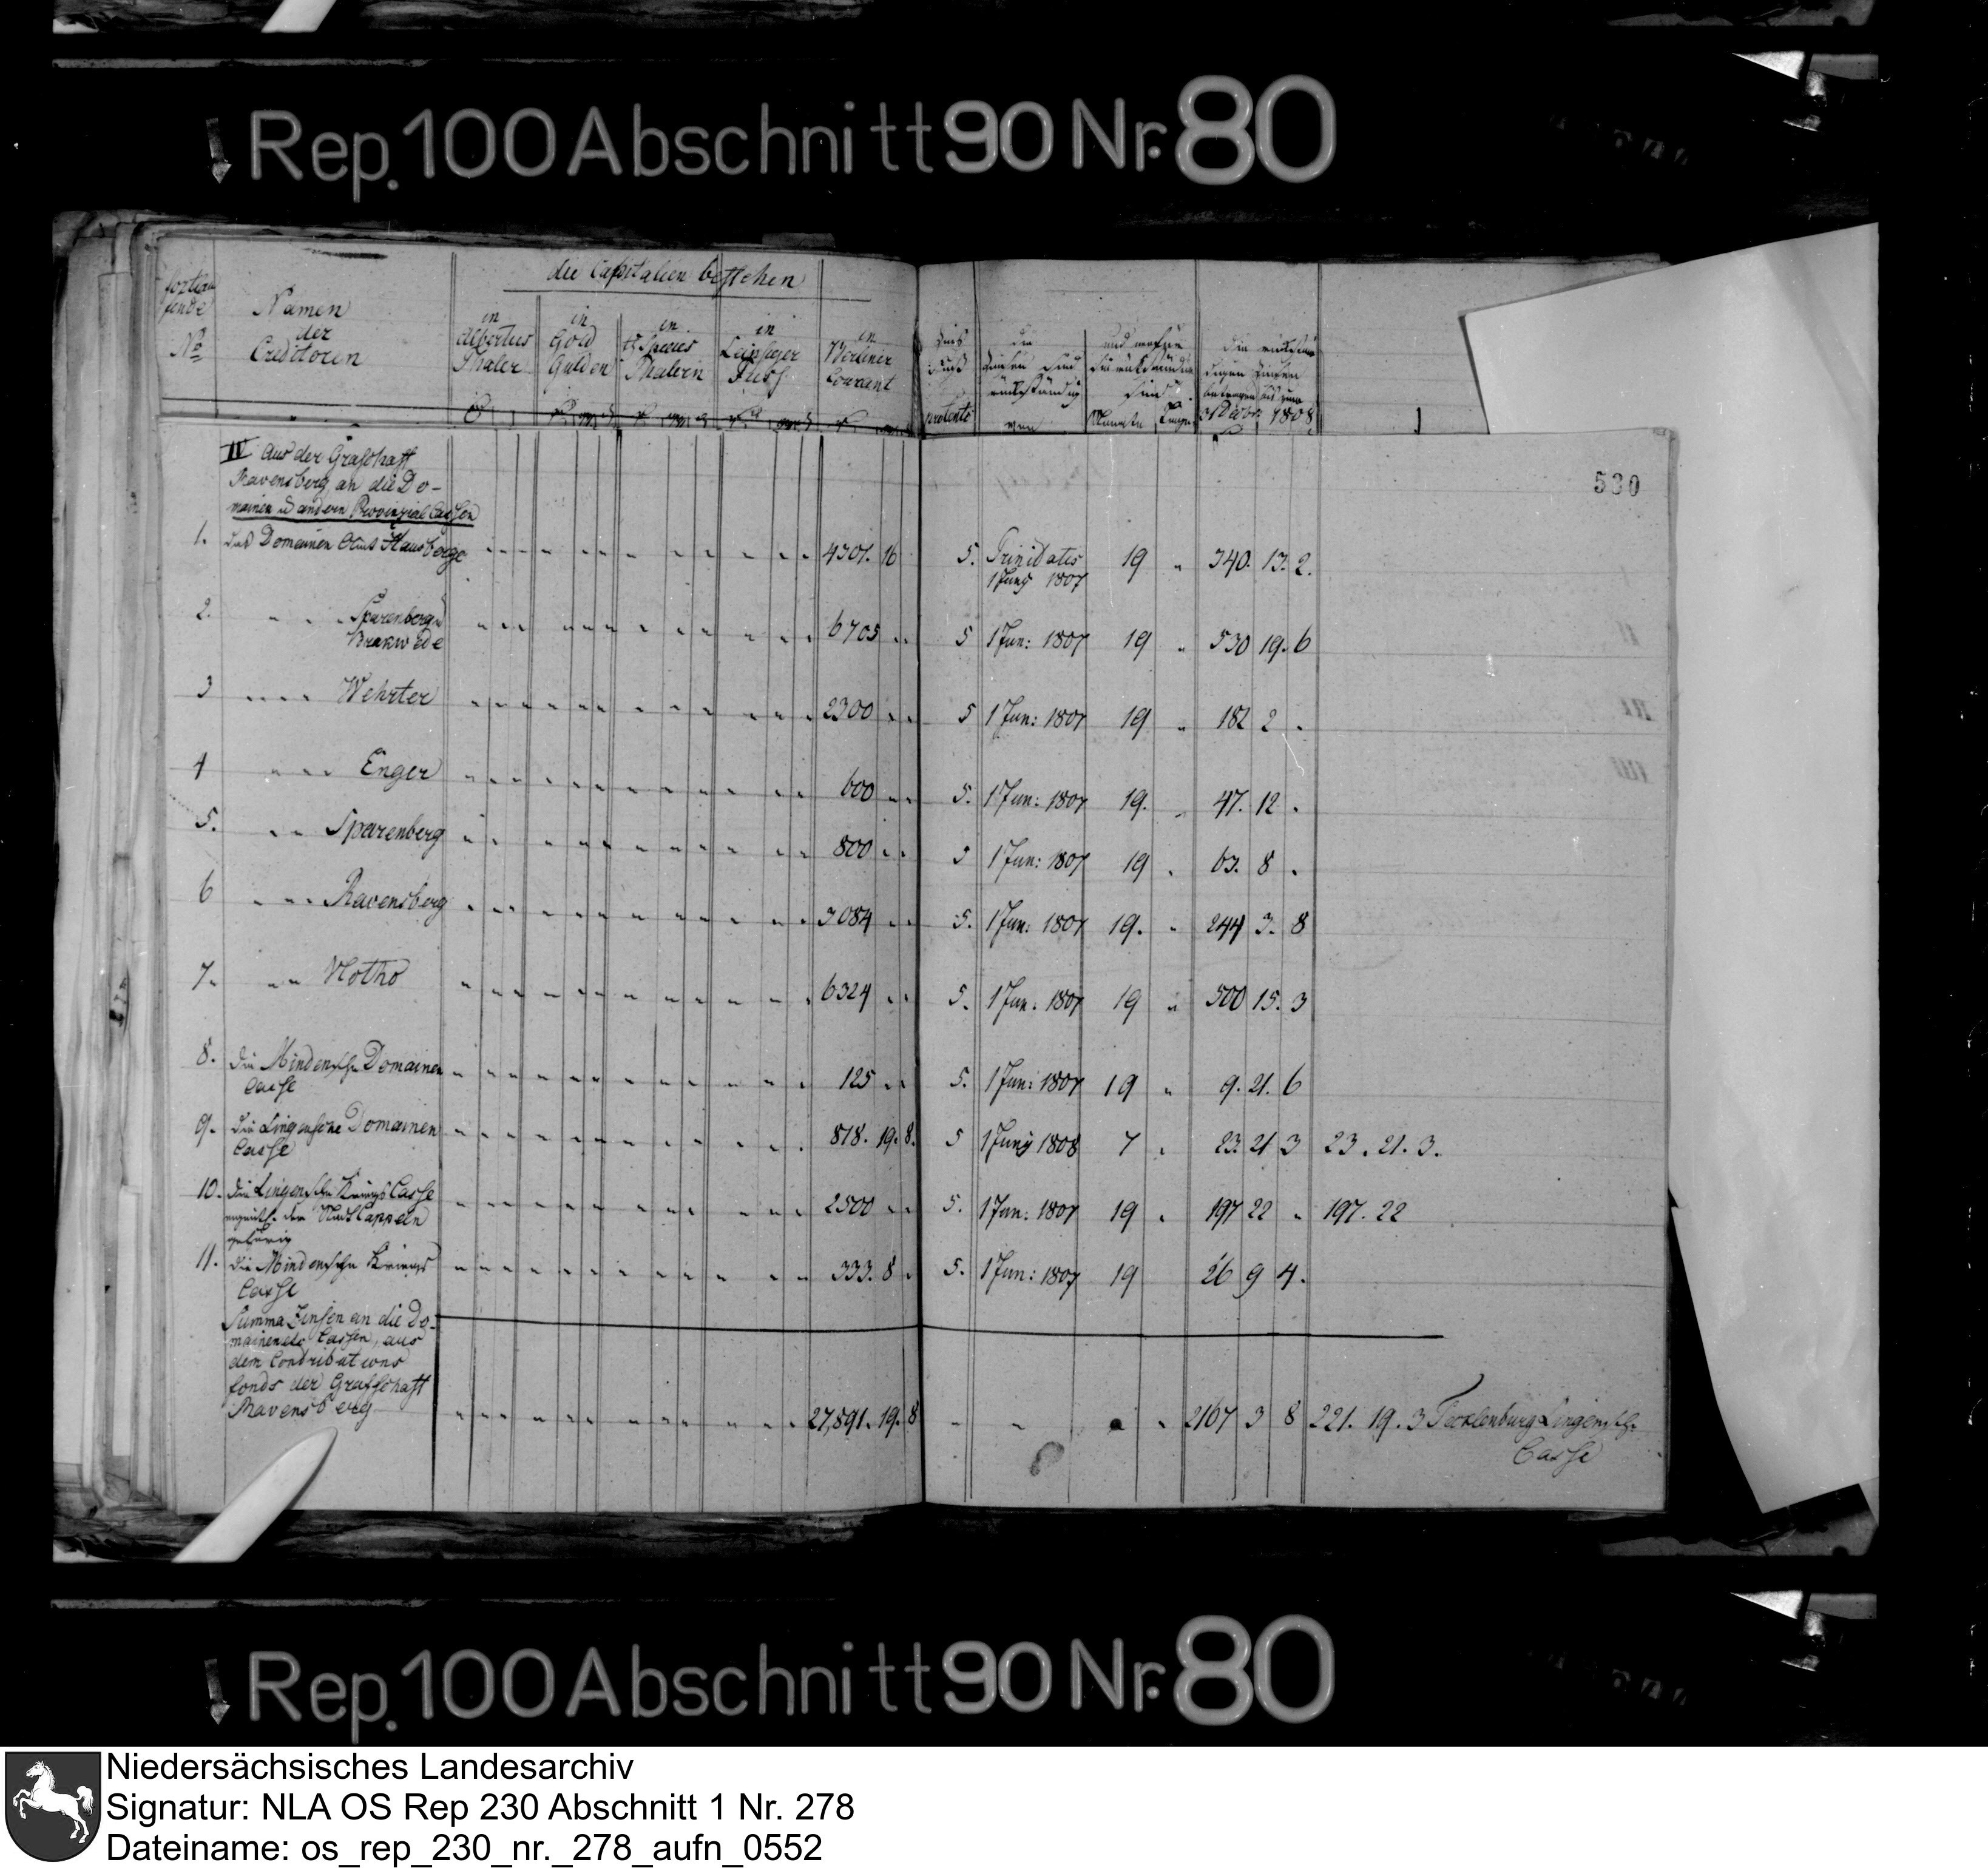 Rep. 100 Abschnitt 90 Nr. 80
die Capitalien bestehen
fortlau
fende
No
Namen
der
Creditoren
in
Albertus
Thaler
in
Gold
Gulden
in
Species
Thalern
in
Leipziger
Fuss
in
Berliner
Courant
procente
die
Zinsen sind
rückständig
von
sind
Monate Tage
die rückstän
digen Zinsen
betragen bis zum
31 Decbr. 1808
530
IV Aus der Grafschaft
Ravensberg an die Do-
mainen u andern Provinzial Cassen
1. das Domainen Amt Hausberge 4301. 16 5. Trinitatis 19 " 340. 13. 2.
1 Juny 1807
2. " " " Sparenberg u
Brakwede 6705 " " 5 1 Jun: 1807 19 " 530 19. 6
3 " " " " Wehrter 2300 " " 5 1 Jun: 1807 19 " 182 2 "
4 " " " Enger 600 " " 5. 1 Jun: 1807 19. " 47. 12 "
5. " " Sparenberg 800 " " 5 1 Jun: 1807 19 " 63. 8 "
6 " " " Ravensberg 3084 " " 5. 1 Jun: 1807 19. " 244 3. 8
7. " " Vlotho 6324 " " 5. 1 Jun: 1807 19 " 500 15. 3
8. die Mindensche Domainen
Casse 125 " " 5. 1 Jun: 1807 19 " 9. 21. 6
9. die Lingensche Domainen
Casse 818. 19. 8. 5 1 Juny 1808 7 " 23. 21 3 23. 21. 3.
10. die Lingensche Kriegs Casse 2500 " " 5. 1 Jun: 1807 19 " 197 22 " 197. 22
der Stadt Cappeln
gehörig
11. die Mindensche Kriegs
Casse 333. 8 " 5. 1 Jun: 1807 19 26 9 4.
Summa Zinsen an die Do-
mainen etc Cassen, aus
dem Contributions
fonds der Grafschaft
Ravensberg 27,891. 19. 8 " " " " 2167 3 8 221. 19. 3 Tecklenburg Lingensche
Casse
Rep. 100 Abschnitt 90 Nr. 80
Niedersächsisches Landesarchiv
Signatur: NLA OS Rep 230 Abschnitt 1 Nr. 278
Dateiname: os_rep_230_nr._278_aufn_0552